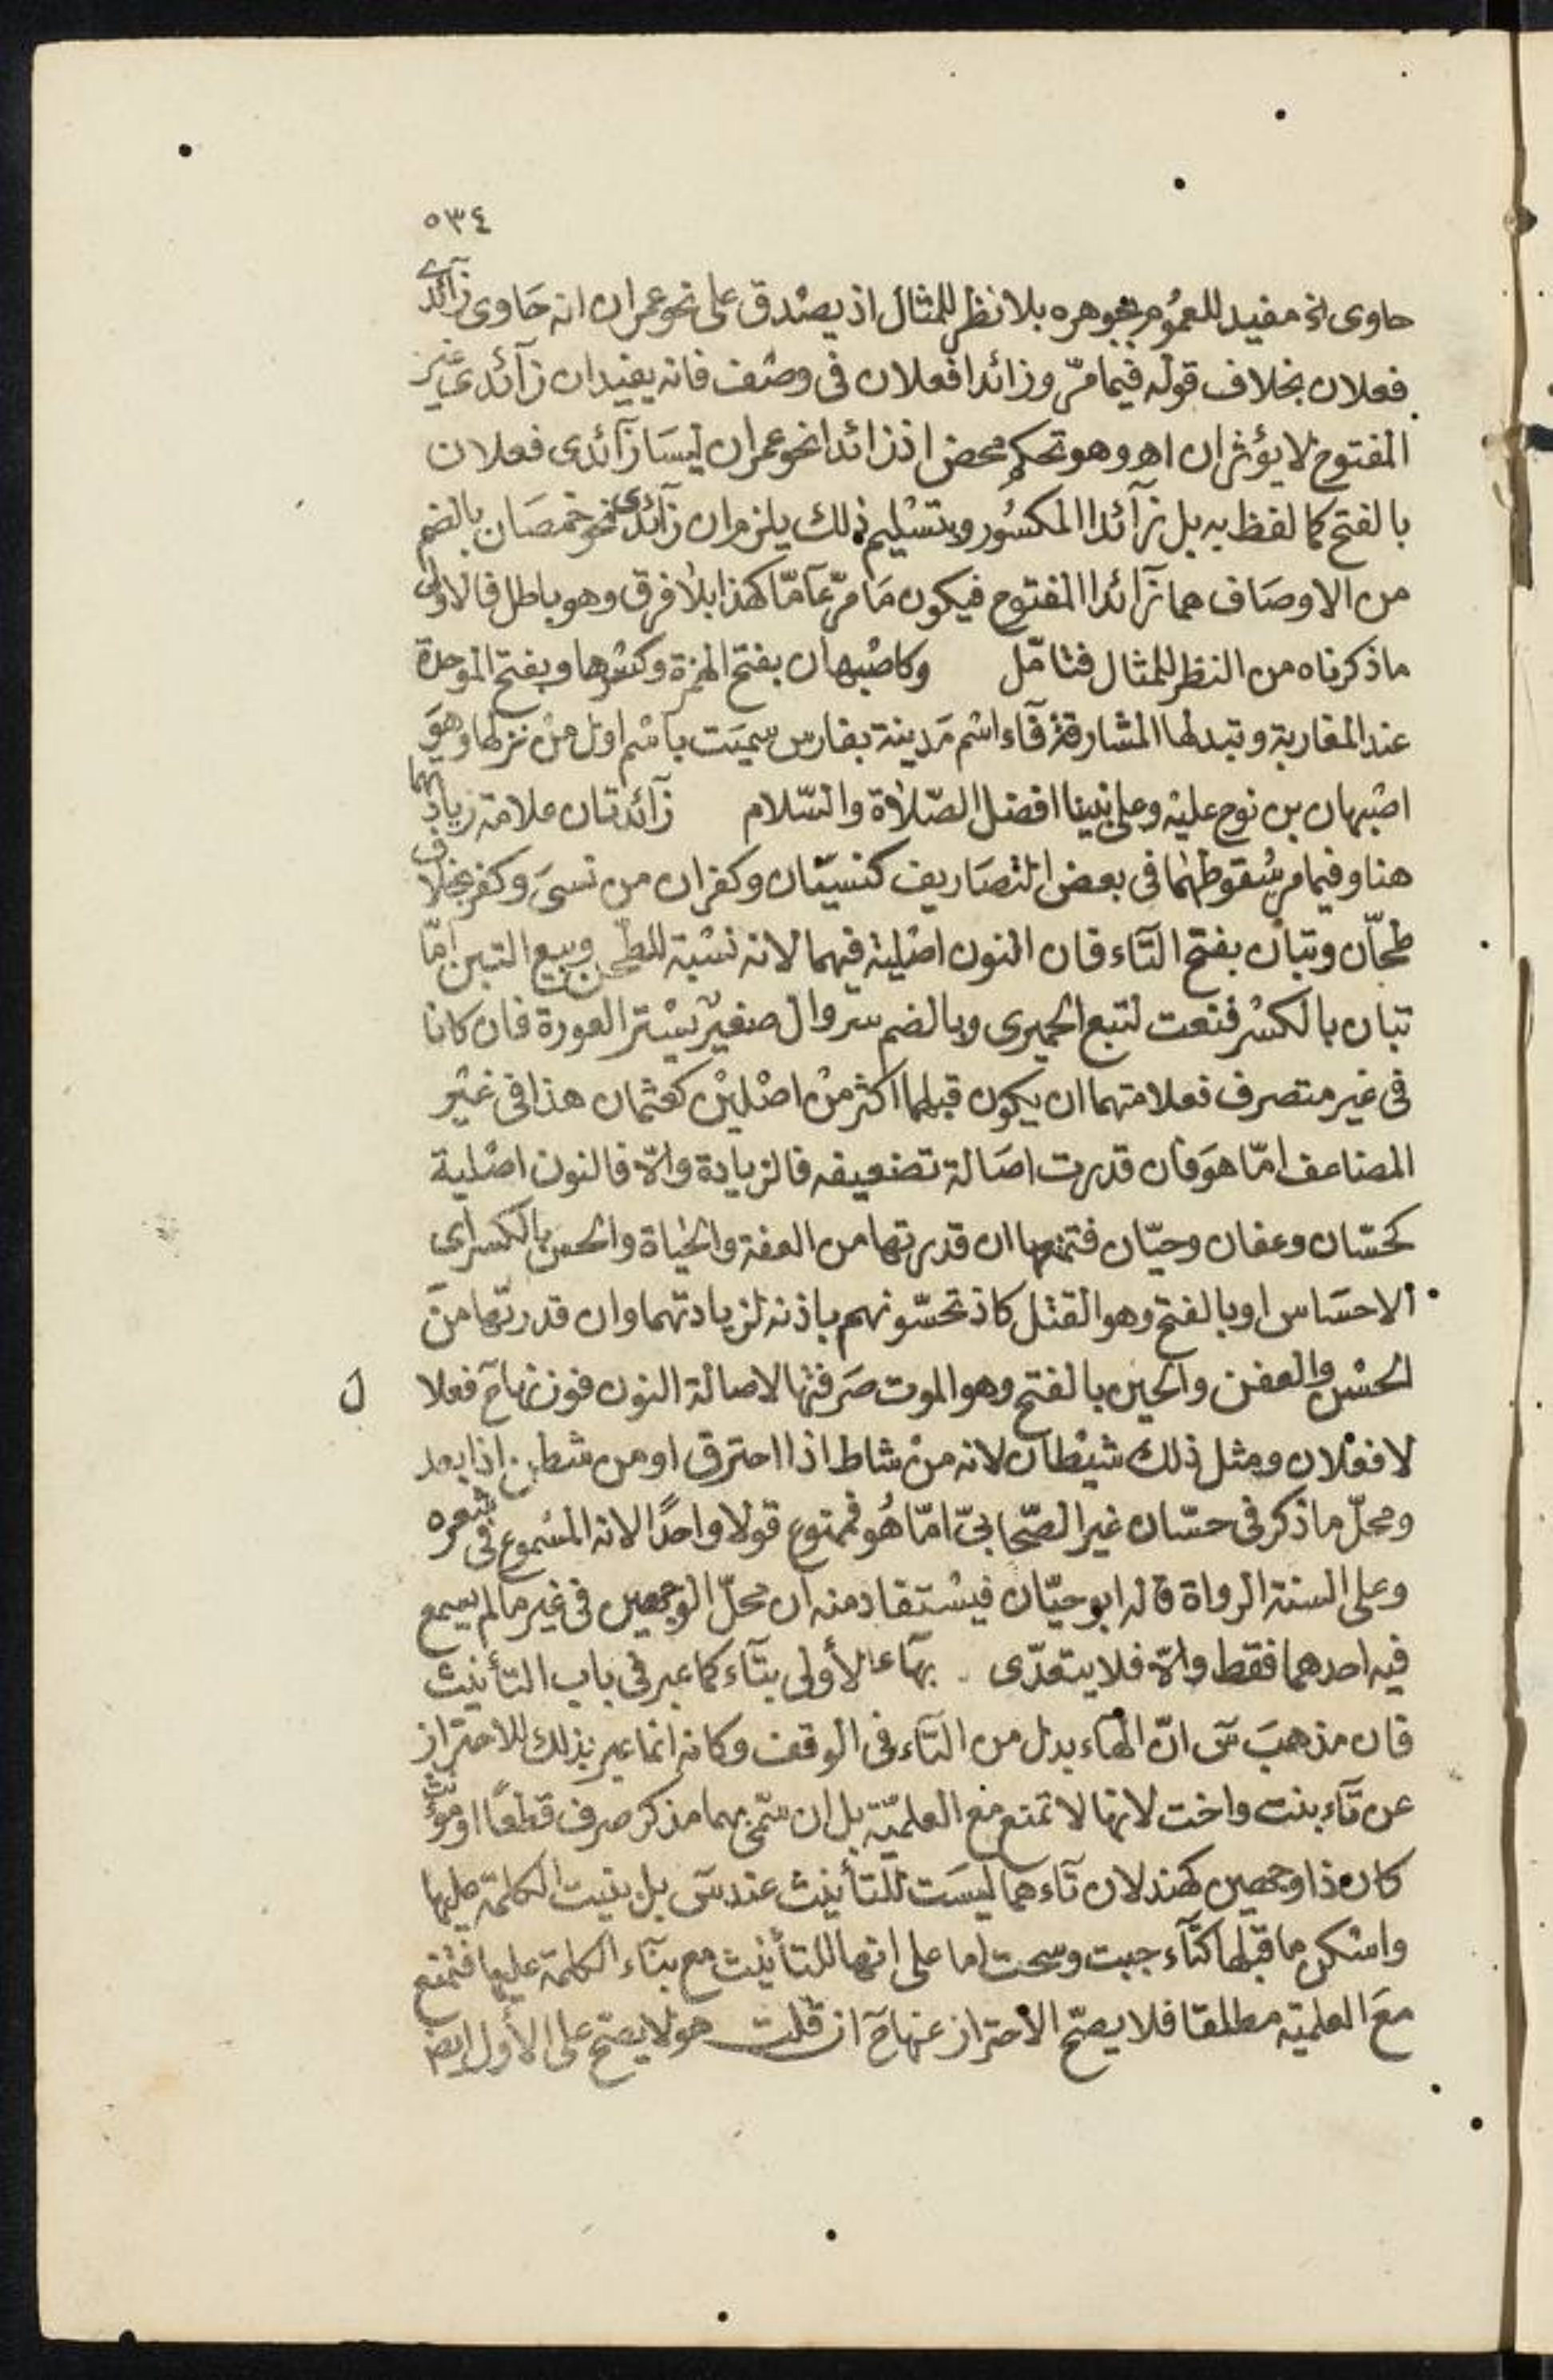 ٥٣٤
حاوى الخ مفيد للعموم بجوهره بلا نظر للمثال اذ يصدق على نحو عمران انه حاوى زآئدى
فعلان بخلاف قوله فيما مرّ وزائدا فعلان فى وصف فانه يفيد ان زآئدى غير
المفتوح لا يؤثران اهـ وهو تحكم محض اذ زائدا نحو عمران ليسا زآئدى فعلان
بالفتح كما لفظ به بل زآئدا المكسور وبتسليم ذلك يلزم ان زآئدى نحو خمصان بالضم
من الاوصاف هما زآئدا المفتوح فيكون ما مرّ عآمّا كهذا بلا فرق وهو باطل فالاولى
ماذكرناه من النظر للمثال فتامّل وكاصبهان بفتح الهمزة وكسرها وبفتح الموحدة
عند المغاربة وتبدلها المشارقة فآء اسم مدينة بفارس سميت باسم اول من نزلها وهو
اصبهان بن نوح عليه وعلى نبينا افضل الصّلاة والسّلام زآئدتان علامة زيادتهما
هنا وفيما مر سقوطهما فى بعض التصاريف كنسيان وكفران من نسى وكفر بخلاف
طحّان وتبان بفتح التآء فان النون اصلية فيهما لانه نسبة للطحن وبيع التبن امّا
تبان بالكسر فنعت لتبع الحميرى وبالضم سروال صغير يستر العورة فان كانا
فى غير متصرف فعلامتهما ان يكون قبلهما اكثر من اصلين كعثمان هذا فى غير
المضاعف امّا هو فان قدرت اصالة تضعيفه فالزيادة والاّ فالنون اصلية
كحسّان وعفان وحيّان فتمنعها ان قدرتها من العفة والحياة والحس بالكسر اى
الاحساس او بالفتح وهو القتل كاذ تحسّونهم باذنه لزيادتهما وان قدرتها من
الحسن والعفن والحين بالفتح وهو الموت صرفتها لاصالة النون فوزنها ح فعلا ل
لا فعلان ومثل ذلك شيطان لانه من شاط اذا احترق او من شطن اذا بعد
ومحلّ ماذكر فى حسّان غير الصّحابىّ امّا هو فممنوع قولا واحدًا لانه المسموع فى شعره
وعلى السنة الرواة قاله ابو حيّان فيستفاد منه ان محلّ الوجهين فى غير ما لم يسمع
فيه احدهما فقط والاّ فلا يتعدّى . بهآء الأولى بتآء كما عبر فى باب التأنيث
فان مذهب س انّ الهاء بدل من التآء فى الوقف وكانه انما عبر بذلك للاحتراز
عن تآء بنت واخت لانها لا تمنع مع العلميّة بل ان سمى بهما مذكر صرف قطعًا او مؤنث
كان ذا وجهين كهند لان تآءهما ليست للتأنيث عند س بل بنيت الكلمة عليها
واسكن ما قبلها كتآء جبت وسحت اما على انها للتأنيث مع بنآء الكلمة عليها فتمنع
مع العلمية مطلقا فلا يصحّ الاحتراز عنها ح ان قلت هو لا يصح على الأول ايضا